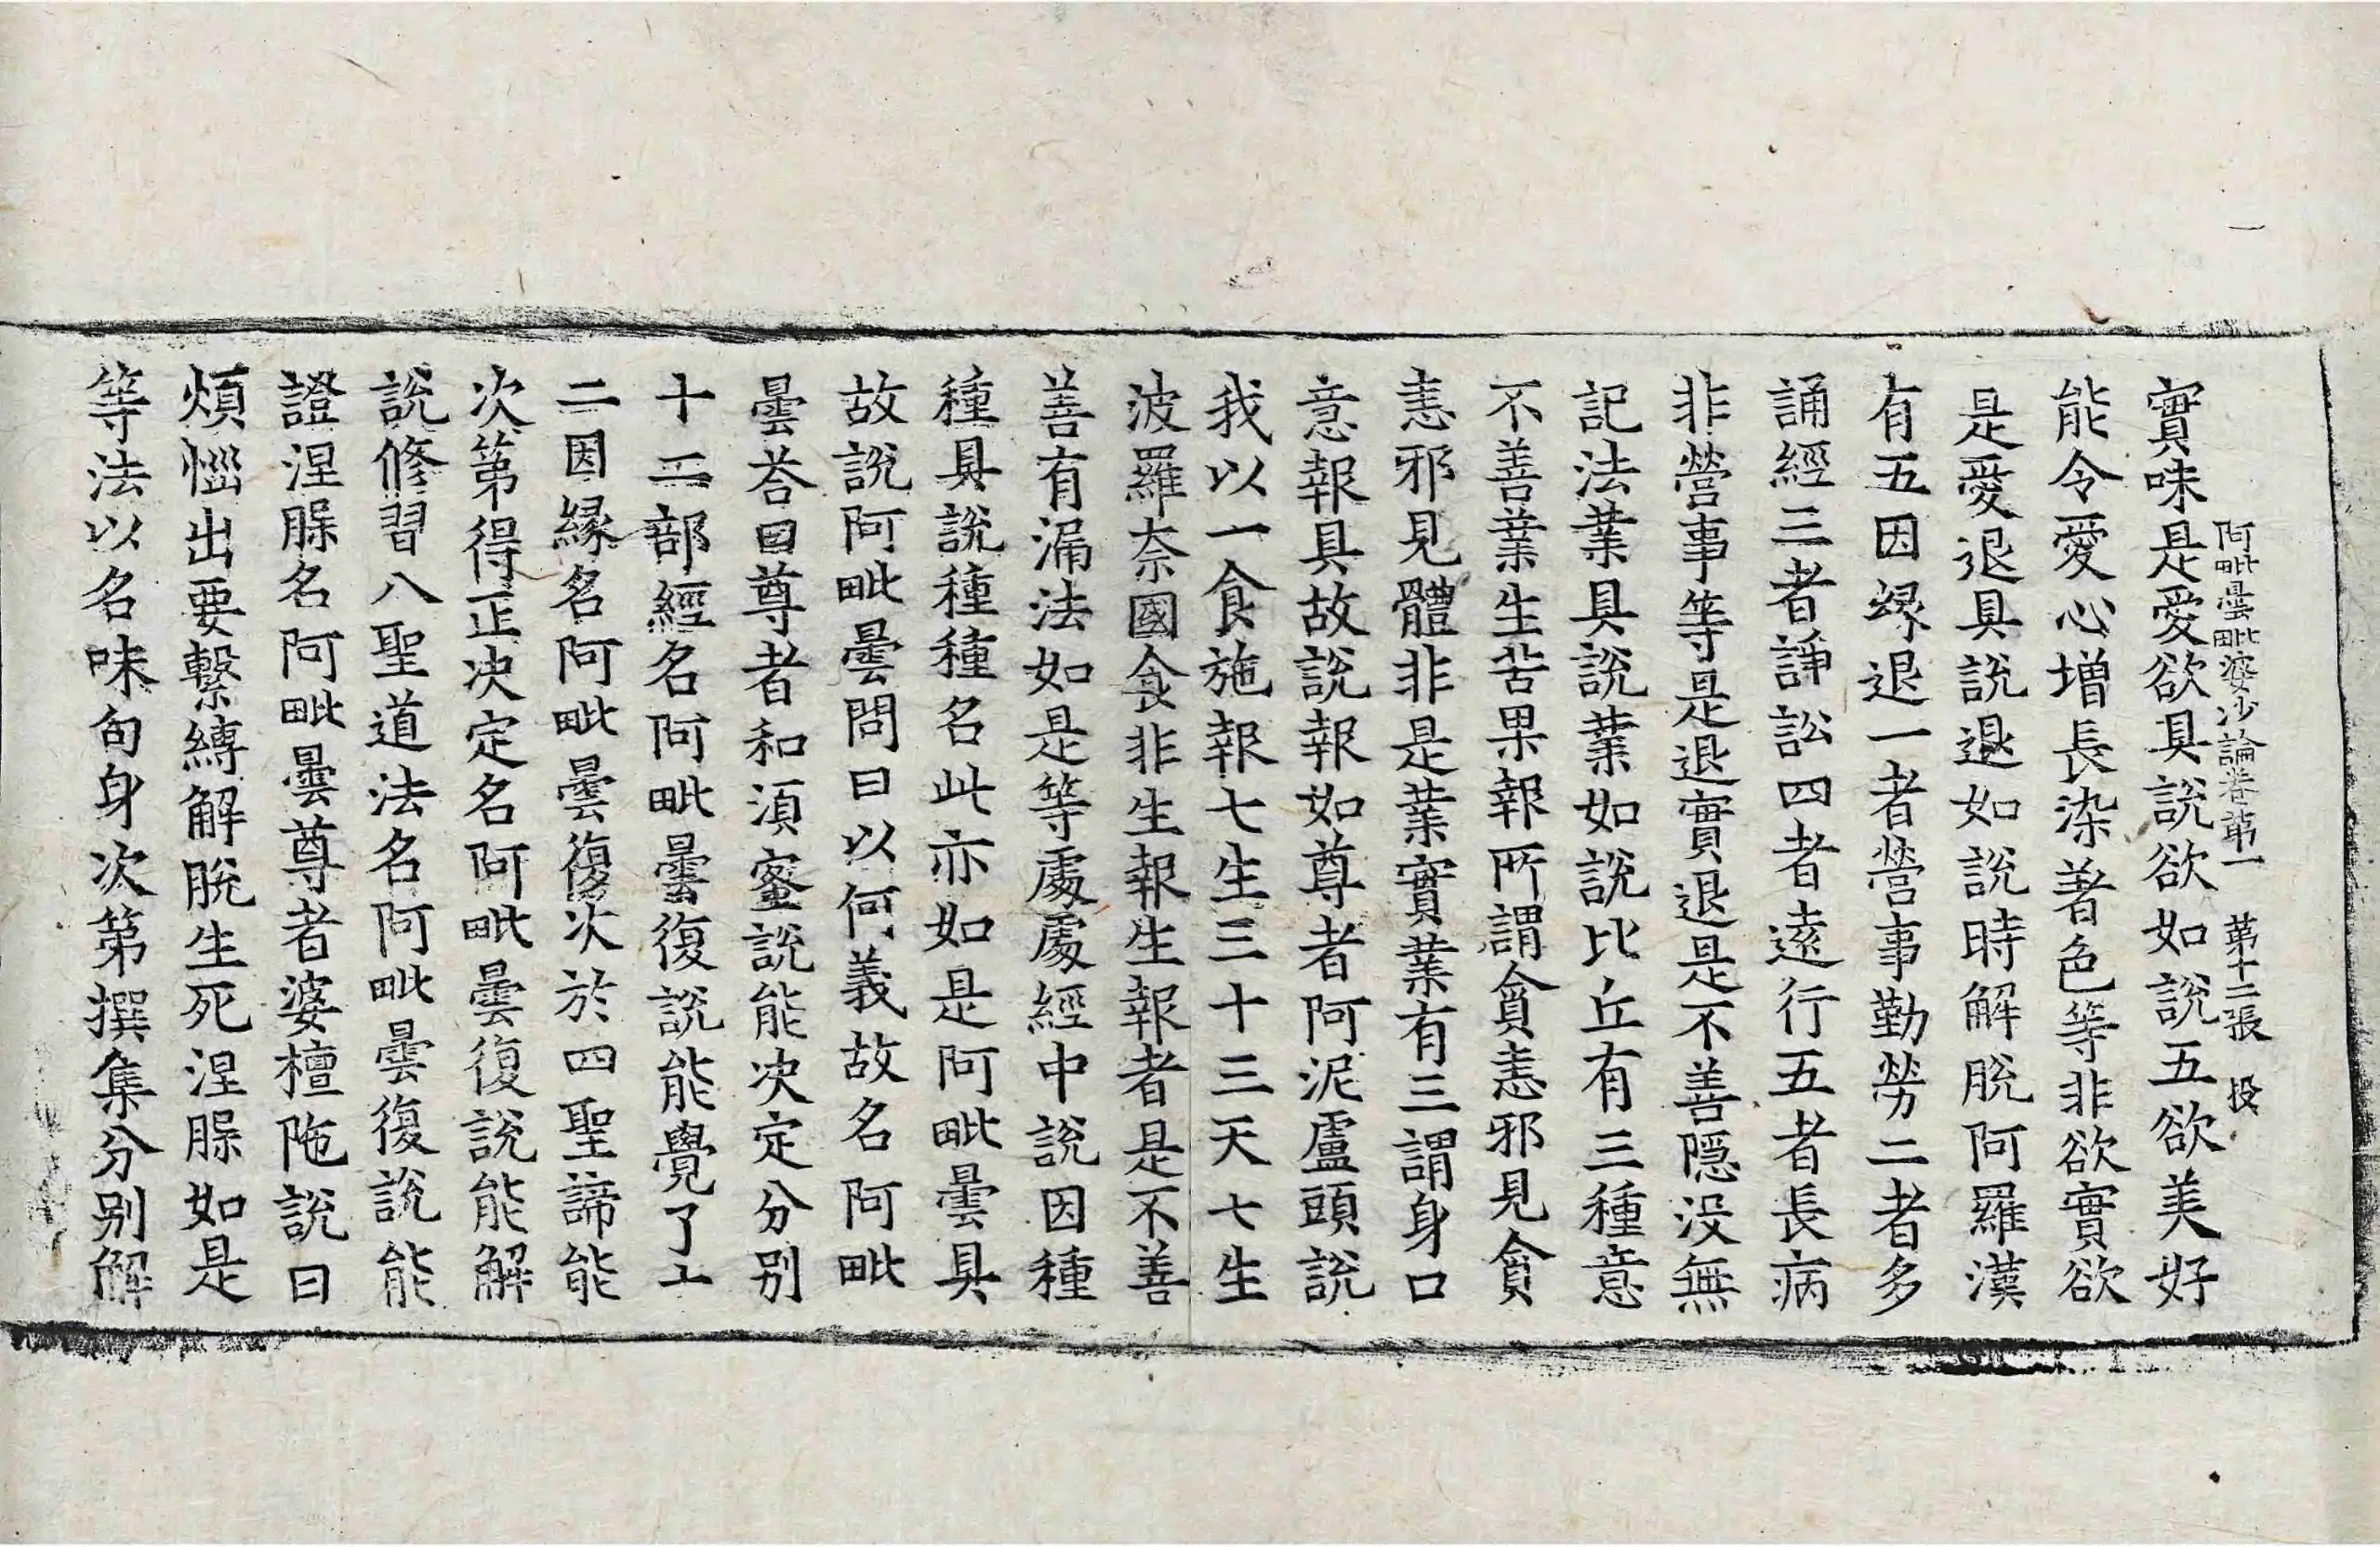 阿毗曇毗婆沙論卷第一 第十二張 投
實味是愛欲具說欲如說五欲美好
能令愛心增長染著色等非欲實欲
是愛退具說退如說時解脫阿羅漢
有五因緣退一者營事勤勞二者多
誦經三者諍訟四者遠行五者長病
非營事等是退實退是不善隱没無
記法業具說業如說比丘有三種意
不善業生苦果報所謂貪恚邪見貪
恚邪見體非是業實業有三謂身口
意報具故說報如尊者阿泥盧頭說
我以一食施報七生三十三天七生
波羅奈國食非生報生報者是不善
善有漏法如是等處處經中說因種
種具說種種名此亦如是阿毗曇具
故說阿毗曇問曰以何義故名阿毗
曇荅曰尊者和湏蜜說能决定分别
十二部經名阿毗曇復說能覺了十
二因緣名阿毗曇復次於四聖諦能
次第得正决定名阿毗曇復說能解
說修習八聖道法名阿毗曇復說能
證涅槃名阿毗曇尊者婆檀陁說曰
煩惱出要繫縛解脫生死涅槃如是
等法以名味句身次第撰集分别解